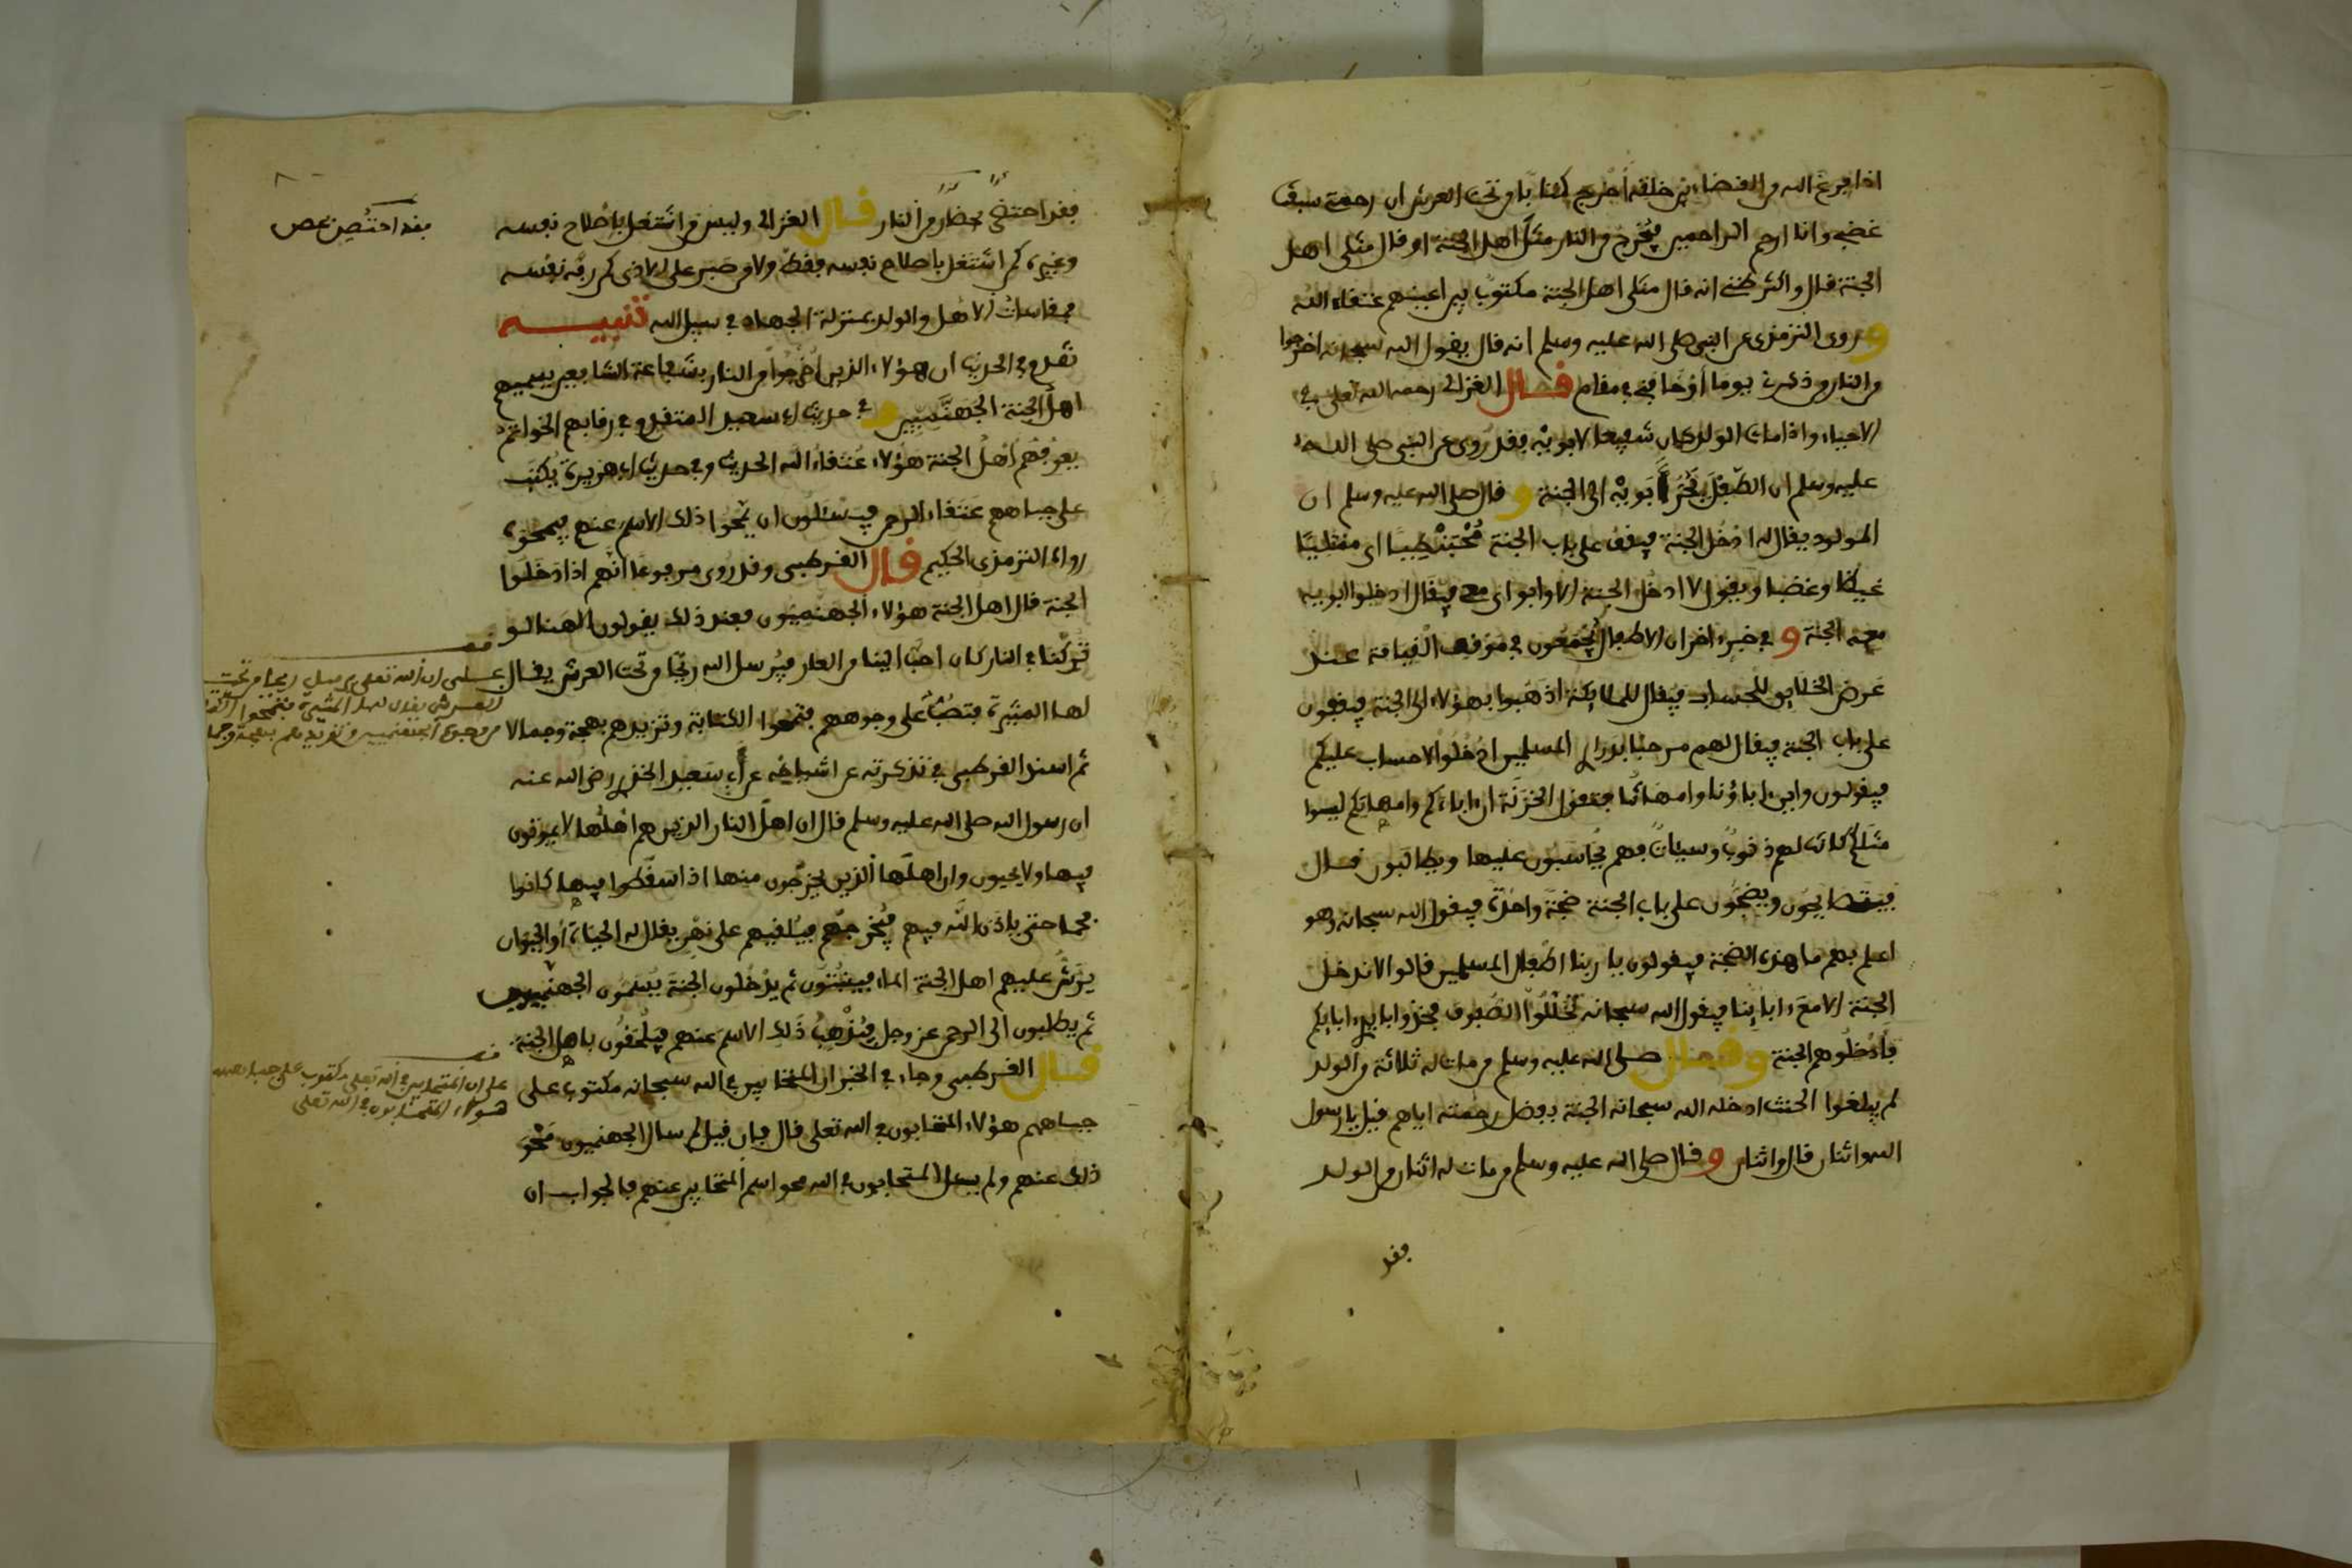 اذا فرغ الله من القضاء بين خلقه أخرج كتابا من تحت العرش ان رحمتي سبقت
غضبي وانا ارحم الراحمين فيخرج من النار مثل اهل الجنة او قال مثلى اهل
الجنة قال واكثر ظني انه قال مثلى اهل الجنة مكتوب بين اعينهم عتقاء الله
وروى الترمذى عن النبى صلى الله عليه وسلم انه قال يقول الله سبحانه اخرجوا
من النار من ذكرنى يوما أو خافنى فى مقام قال الغزالى رحمه الله تعلى فى
الاحياء واذا مات الولد كان شفيعا لابويه فقد روى عن النبى صلى الله
عليه وسلم ان الطفل يجر أبويه الى الجنة وقال صلى الله عليه وسلم ان
المولود يقال له ادخل الجنة فيقف على باب الجنة محبنطيا اى ممتليا
غيظا وغضبا ويقول لا ادخل الجنة الا وابواى معى فيقال ادخلوا ابويه
معه الجنة و فى خبر ءاخر ان الاطفال يجمعون فى موقف القيامة عند
عرض الخلايق للحساب فيقال للملايكة اذهبوا بهؤلاء الى الجنة فيقفون
على باب الجنة فيقال لهم مرحبا بذرارى المسلمين ادخلوا لا حساب عليكم
فيقولون واين ءاباؤنا وامهاتنا فتقول الخزنة ان ءاباءكم وامهاتكم ليسوا
مثلكم كانت لهم ذنوب وسيئات فهم يحاسبون عليها ويطالبون قال
فيتصايحون ويضجون على باب الجنة ضجة واحدة فيقول الله سبحانه وهو
اعلم بهم ما هذه الضجة فيقولون يا ربنا اطفال المسلمين قالوا لا ندخل
الجنة الا مع ءابائنا فيقول الله سبحانه تخللوا الصفوف فخذوا بايدى ءابايكم
فأدخلوهم الجنة وقال صلى الله عليه وسلم من مات له ثلاثة من الولد
لم يبلغوا الحنث ادخله الله سبحانه الجنة بفضل رحمته اياهم قيل يا رسول
الله واثنان قال واثنان وقال صلى الله عليه وسلم من مات له اثنان من الولد
فقد
فقد احتظر بحظار من النار قال الغزالى وليس من اشتغل باصلاح نفسه
فقد احتظر نص
وغيره كمن اشتغل باصلاح نفسه فقط ولا من صبر على الاذى كمن رفه نفسه
فمقاسات الاهل والولد بمنزلة الجهاد فى سبيل الله تنبيه
تقدم فى الحديث ان هؤلاء الذين اخرجوا من النار بشفاعة الشافعين يسميهم
اهل الجنة الجهنميين و فى حديث ابى سعيد المتقدم فى رقابهم الخواتم
يعرفهم أهل الجنة هؤلاء عتقاء الله الحديث وفى حديث ابى هريرة يكتب
على جباههم عتقاء الرحمن فيسئلون ان يمحوا ذلك الاسم عنهم فيمحوه
رواه الترمذى الحكيم قال القرطبى وقد روى مرفوعا انهم اذا دخلوا
الجنة قال اهل الجنة هؤلاء الجهنميون فعند ذلك يقولون الهنا لو
تركتنا فى النار كان احب الينا من العار فيرسل الله ريحا من تحت العرش يقال
لها المثيرة فتهب على وجوههم فتمحوا الكتابة وتزيدهم بهجة وجمالا
على ان الله تعلى يرسل ريحا من تحت
العرش يقال لها المثيرة فتمحوا
من وجوه الجهنميين وتزيدهم بهجة وجمالا
ثم اسند القرطبى فى تذكرته عن اشياخه عن أبى سعيد الخدرى رضى الله عنه
ان رسول الله صلى الله عليه وسلم قال ان اهل النار الذين هم اهلها لا يموتون
فيها ولا يحيون وان اهلها الذين يخرجون منها اذا سقطوا فيها كانوا
فحما حتى ياذن الله فيهم فيخرجهم فيلقيهم على نهر يقال له الحياة أو الحيوان
يرش عليهم اهل الجنة الماء فينبتون ثم يدخلون الجنة يسمون الجهنميون
ثم يطلبون الى الرحمن عز وجل فيذهب ذلك الاسم عنهم فيلحقون باهل الجنة
قال القرطبى وجاء فى الخبر ان المتحابين فى الله سبحانه مكتوب على
جباههم هؤلاء المتحابون فى الله تعلى قال فان قيل لم سال الجهنميون محو
على ان المتحابين فى الله تعلى مكتوب على جباههم
هؤلاء المتحابون فى الله تعلى
ذلك عنهم ولم يسل المتحابون فى الله محو اسم المتحابين عنهم فالجواب ان